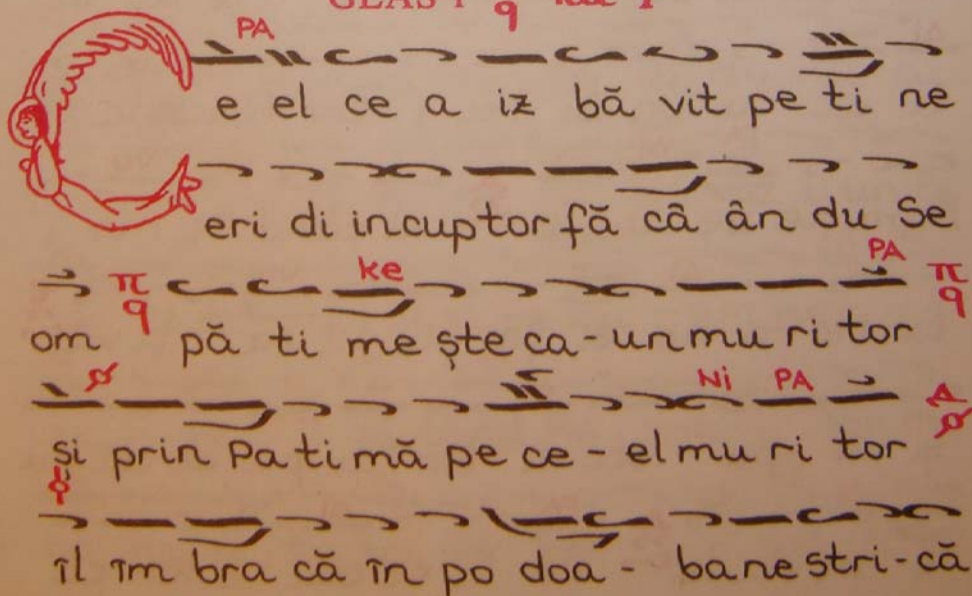 GLAS I
PA
e el ce a iz bă vit pe ti ne
eri di incuptor fă câ ân du Se
ke PA
om π q pă ti me ște ca-un mu ri tor π q
Ni PA
și prin Pa ti mă pe ce-el mu ri tor
îl îm bra că în po doa- ba ne stri-că